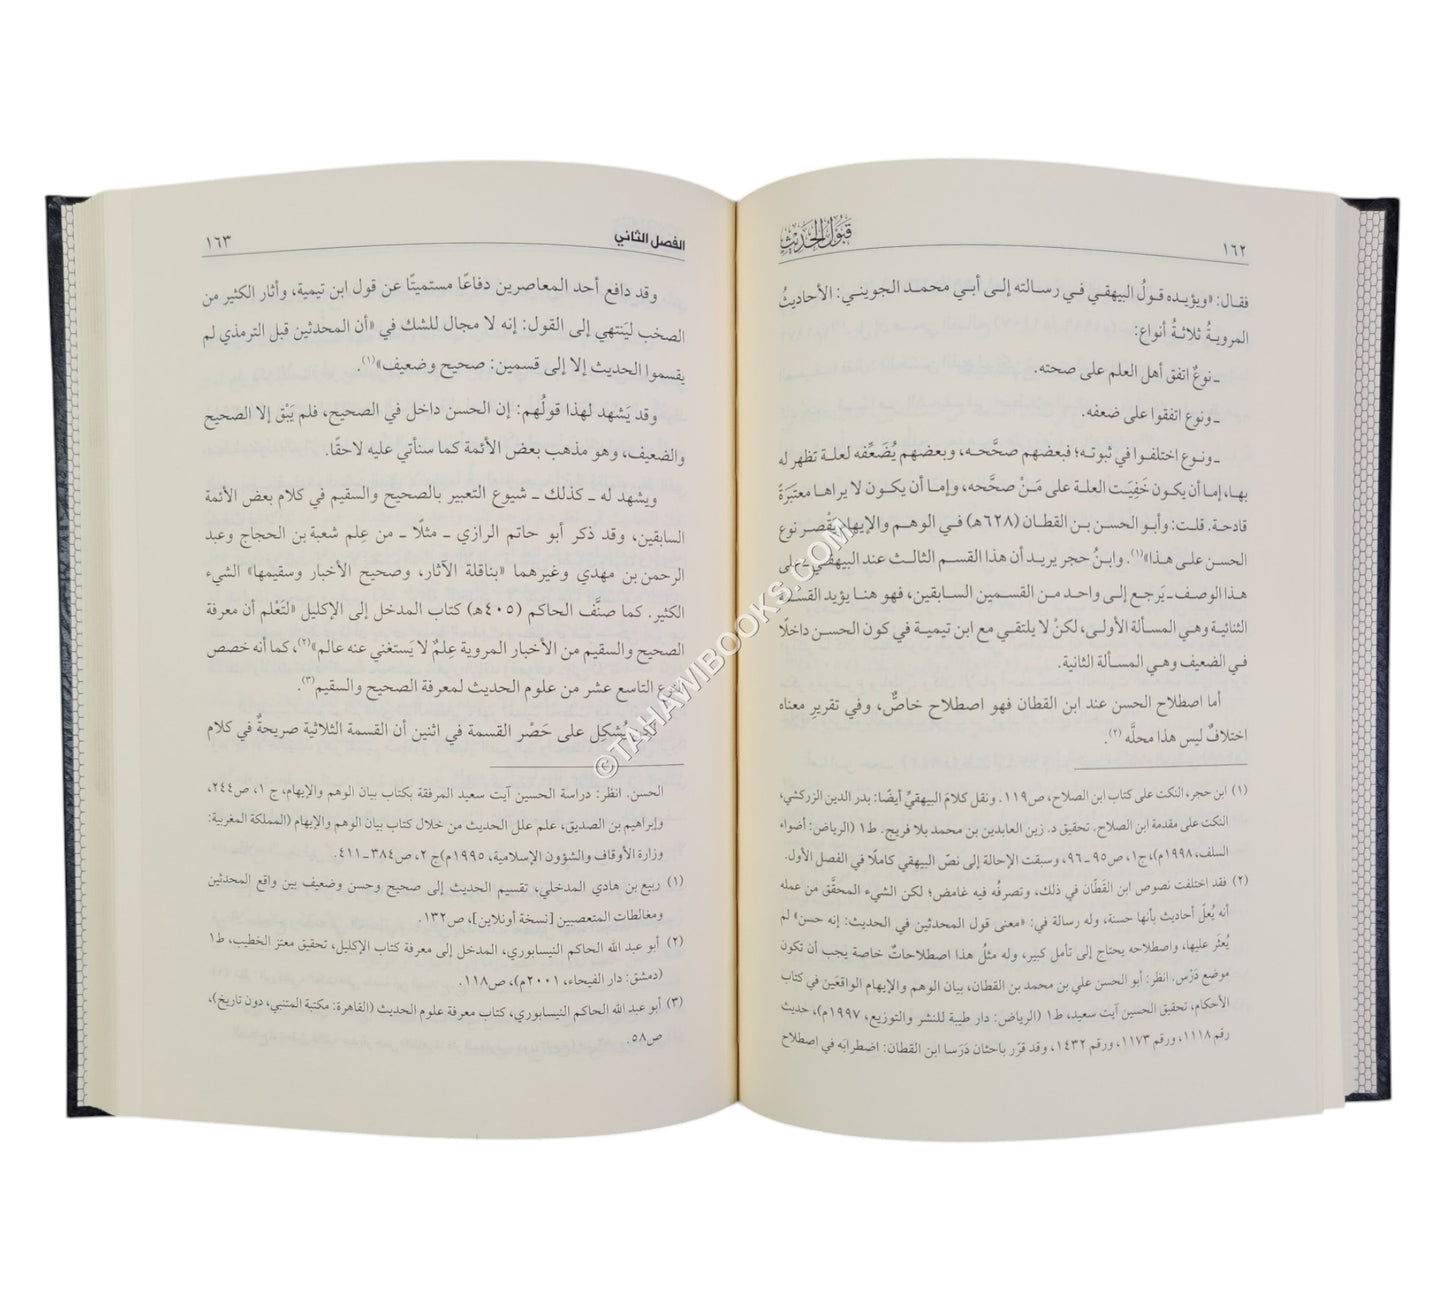 ١٦٢
قبول الحديث
فقال: «ويؤيده قولُ البيهقي في رسالته إلى أبي محمد الجويني: الأحاديثُ
المرويةُ ثلاثةُ أنواع:
ـ نوعٌ اتفق أهل العلم على صحته.
ـ ونوع اتفقوا على ضعفه.
ـ ونوع اختلفوا في ثبوته؛ فبعضهم صحَّحه، وبعضهم يُضَعِّفه لعلة تظهر له
بها، إما أن يكون خَفِيَت العلة على مَنْ صحَّحه، وإما أن يكون لا يراها معتبَرَةً
قادحة. قلت: وأبو الحسن بن القطان (٦٢٨هـ) في الوهم والإيهام يَقْصر نوع
الحسن على هذا»(١). وابنُ حجر يريد أن هذا القسم الثالث عند البيهقي ـ على
هذا الوصف ـ يَرجع إلى واحد من القسمين السابقين، فهو هنا يؤيد القسمة
الثنائية وهي المسألة الأولى، لكنْ لا يلتقي مع ابن تيمية في كون الحسن داخلًا
في الضعيف وهي المسألة الثانية.
أما اصطلاح الحسن عند ابن القطان فهو اصطلاح خاصٌّ، وفي تقريرِ معناه
اختلافٌ ليس هذا محلَّه (٢).
(١) ابن حجر، النكت على كتاب ابن الصلاح، ص١١٩. ونقل كلامَ البيهقيِّ أيضًا: بدر الدين الزركشي،
النكت على مقدمة ابن الصلاح. تحقيق د. زين العابدين بن محمد بلا فريج. ط١ (الرياض: أضواء
السلف، ١٩٩٨م)، ج١، ص٩٥ ـ ٩٦، وسبقت الإحالة إلى نصّ البيهقي كاملًا في الفصل الأول.
(٢) فقد اختلفت نصوص ابن القَطّان في ذلك، وتصرفُه فيه غامض؛ لكن الشيء المحقَّق من عمله
أنه يُعلّ أحاديث بأنها حسنة، وله رسالة في: «معنى قول المحدثين في الحديث: إنه حسن» لم
يُعثَر عليها، واصطلاحه يحتاج إلى تأمل كبير، وله مثلُ هذا اصطلاحاتٌ خاصة يجب أن تكون
موضع دَرْس. انظر: أبو الحسن علي بن محمد بن القطان، بيان الوهم والإيهام الواقعَين في كتاب
الأحكام، تحقيق الحسين آيت سعيد، ط١ (الرياض: دار طيبة للنشر والتوزيع، ١٩٩٧م)، حديث
رقم ١١١٨، ورقم ١١٧٣، ورقم ١٤٣٢، وقد قرّر باحثان دَرَسا ابن القطان: اضطرابَه في اصطلاح
الفصل الثاني
١٦٣
وقد دافع أحد المعاصرين دفاعًا مستميتًا عن قول ابن تيمية، وأثار الكثير من
الصخب ليَنتهي إلى القول: إنه لا مجال للشك في «أن المحدثين قبل الترمذي لم
يقسموا الحديث إلا إلى قسمين: صحيح وضعيف»(١).
وقد يَشهد لهذا قولُهم: إن الحسن داخل في الصحيح، فلم يَبْق إلا الصحيح
والضعيف، وهو مذهب بعض الأئمة كما سنأتي عليه لاحقًا.
ويشهد له ـ كذلك ـ شيوع التعبير بالصحيح والسقيم في كلام بعض الأئمة
السابقين، وقد ذكر أبو حاتم الرازي ـ مثلًا ـ من عِلم شعبة بن الحجاج وعبد
الرحمن بن مهدي وغيرهما «بناقلة الآثار، وصحيح الأخبار وسقيمها» الشيء
الكثير. كما صنَّف الحاكم (٤٠٥هـ) كتاب المدخل إلى الإكليل «لتَعْلم أن معرفة
الصحيح والسقيم من الأخبار المروية عِلمٌ لا يَستغني عنه عالم»(٢)، كما أنه خصص
النوع التاسع عشر من علوم الحديث لمعرفة الصحيح والسقيم(٣).
يُشكِل على حَصْر القسمة في اثنين أن القسمة الثلاثية صريحةٌ في كلام
الحسن. انظر: دراسة الحسين آيت سعيد المرفقة بكتاب بيان الوهم والإيهام، ج ١، ص٢٤٤،
وإبراهيم بن الصديق، علم علل الحديث من خلال كتاب بيان الوهم والإيهام (المملكة المغربية:
وزارة الأوقاف والشؤون الإسلامية، ١٩٩٥م)ج ٢، ص٣٨٤ ـ ٤١١.
(١) ربيع بن هادي المدخلي، تقسيم الحديث إلى صحيح وحسن وضعيف بين واقع المحدثين
ومغالطات المتعصبين [نسخة أونلاين]، ص١٣٢.
(٢) أبو عبد الله الحاكم النيسابوري، المدخل إلى معرفة كتاب الإكليل، تحقيق معتز الخطيب، ط١
(دمشق: دار الفيحاء، ٢٠٠١م)، ص١١٨.
(٣) أبو عبد الله الحاكم النيسابوري، كتاب معرفة علوم الحديث (القاهرة: مكتبة المتنبي، دون تاريخ)،
ص٥٨.
©TAHAWIBOOKS.COM